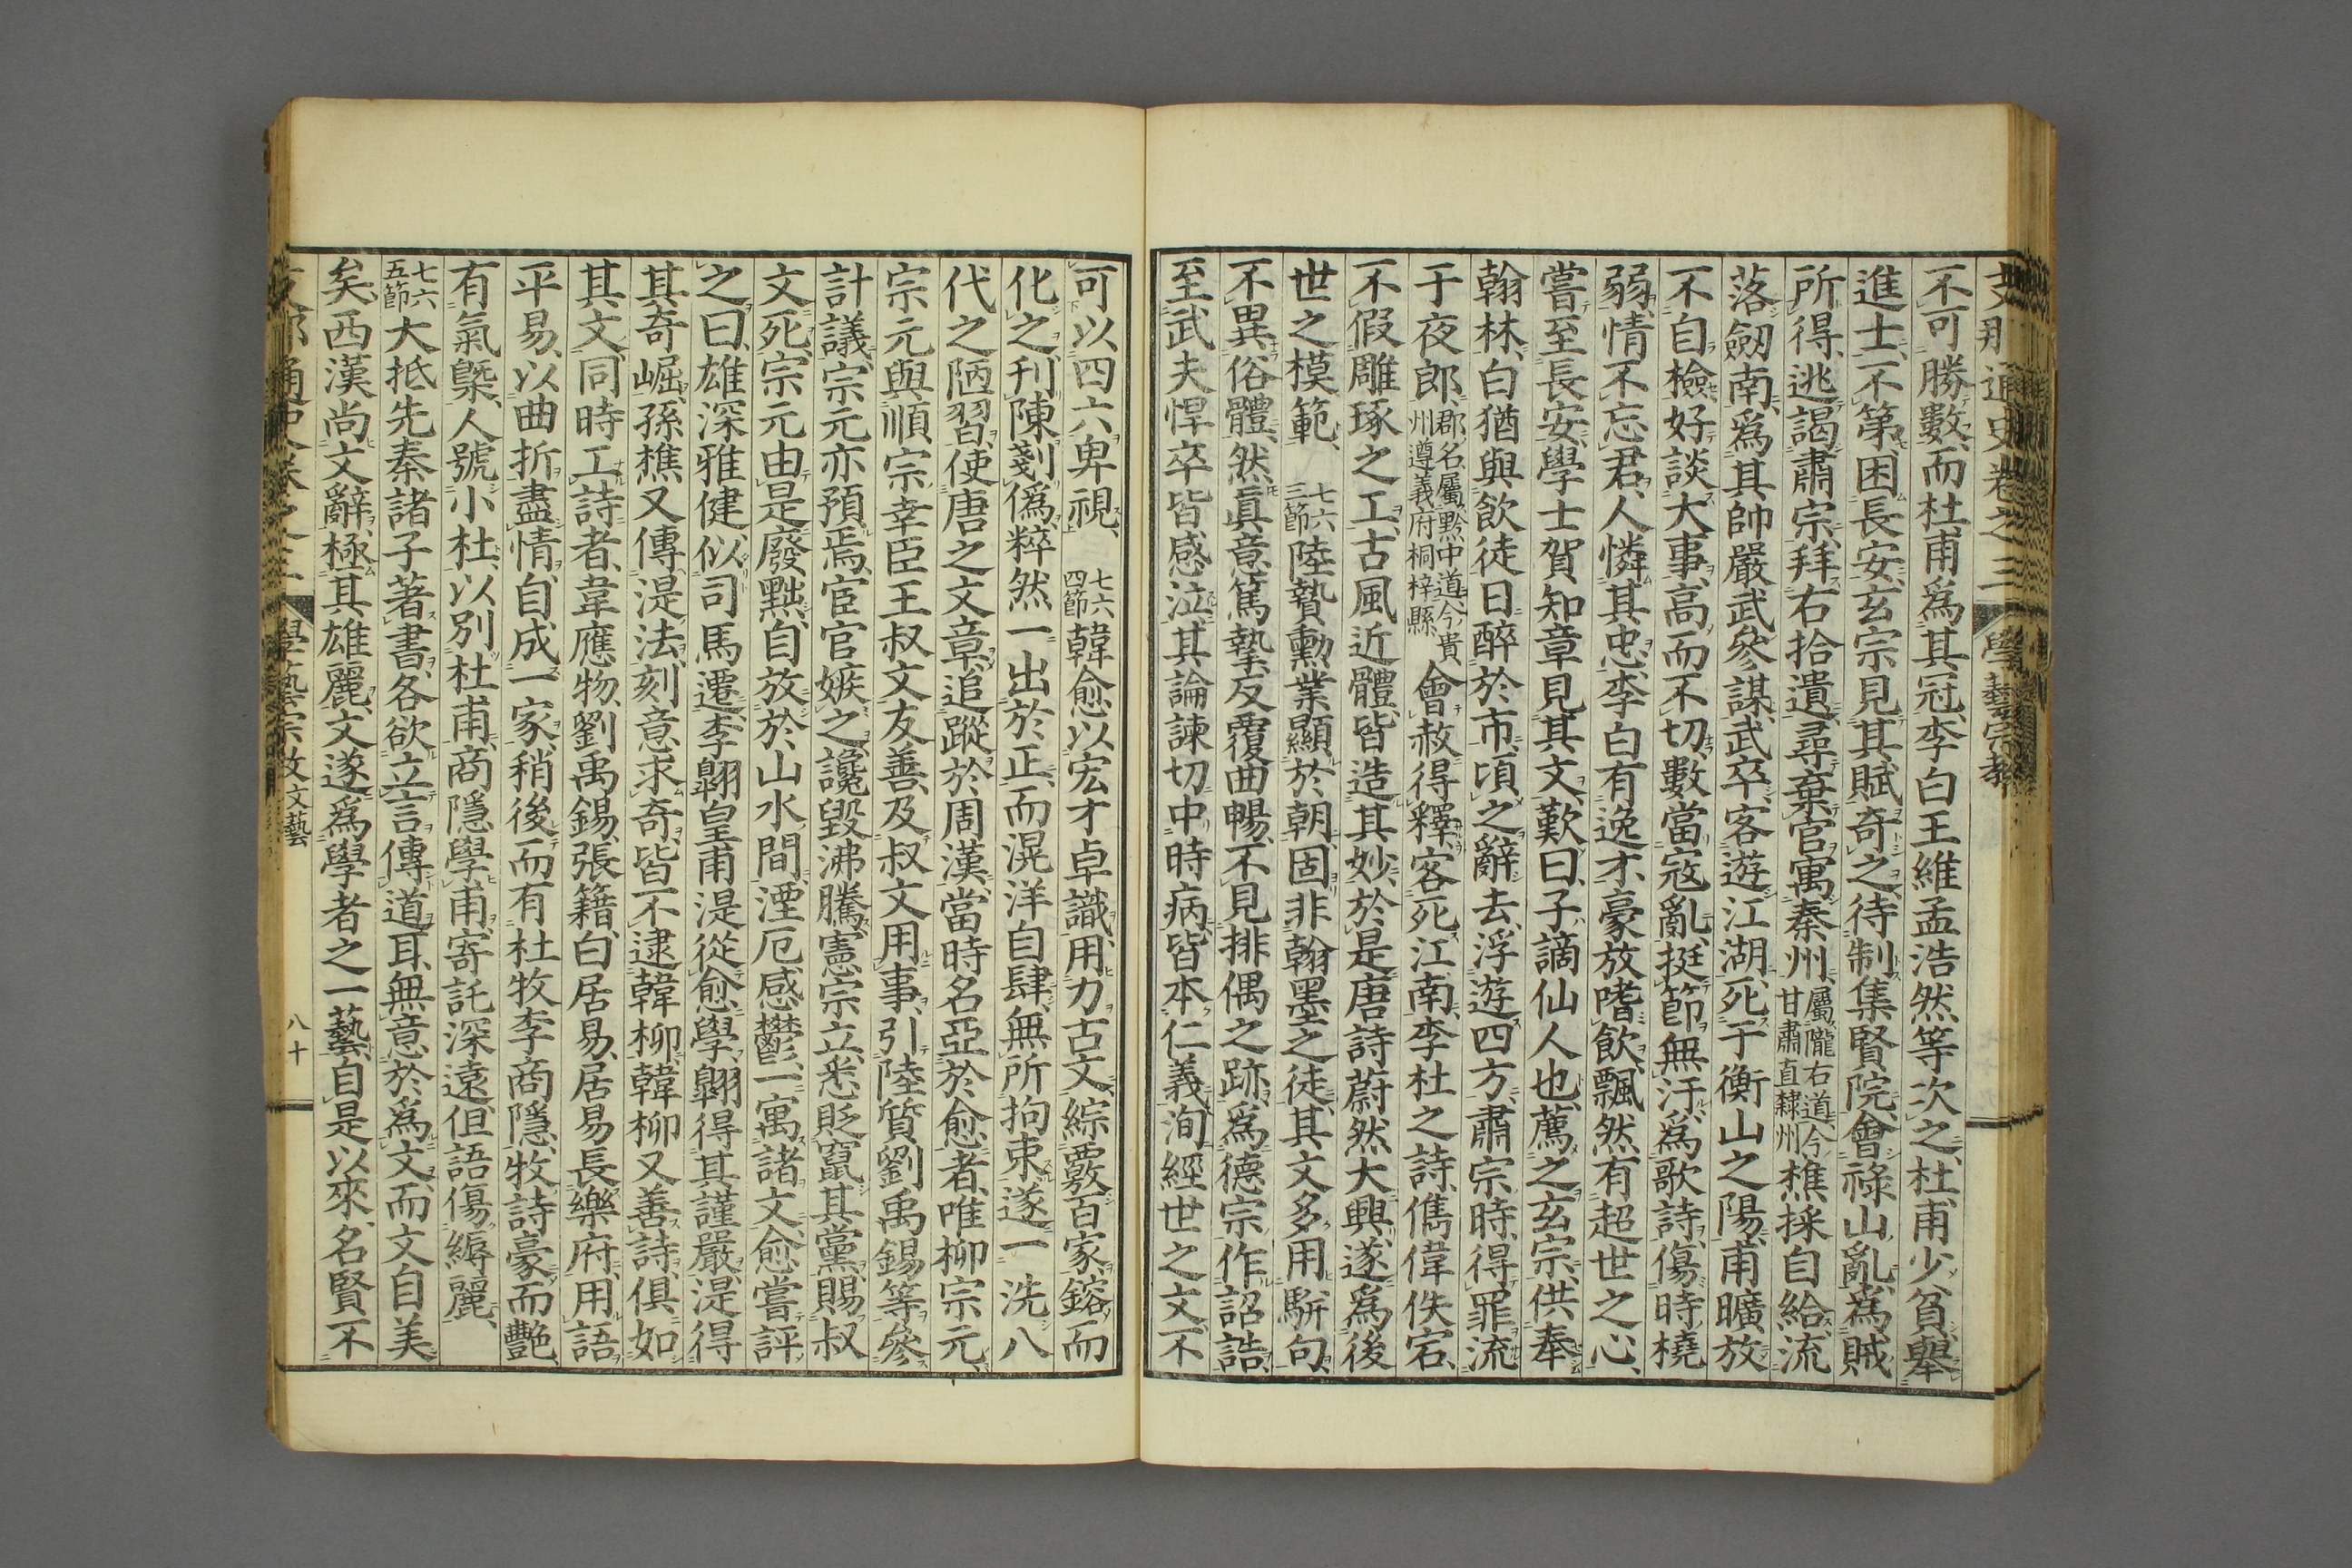 支那通史卷之三 學藝宗教
不可勝數、而杜甫爲其冠、李白王維孟浩然等次之、杜甫少貧、舉
進士、不第、困長安、玄宗見其賦奇之、待制集賢院、會祿山亂、爲賊
所得、逃謁肅宗、拜右拾遺、尋棄官寓秦州、屬隴右道、今甘肅直隸州樵採自給、流
落劒南、爲其帥嚴武參謀、武卒、客遊江湖、死于衡山之陽、甫曠放
不自檢、好談大事、高而不切、數當寇亂、挺節無汙、爲歌詩、傷時橈
弱、情不忘君、人憐其忠、李白有逸才、豪放嗜飮、飄然有超世之心、
嘗至長安、學士賀知章見其文、歎曰、子謫仙人也、薦之玄宗、供奉
翰林、白猶與飮徒日醉於市、頃之辭去、浮遊四方、肅宗時、得罪流
于夜郎、郡名、屬黔中道、今貴州遵義府桐梓縣會赦得釋、客死江南、李杜之詩、儁偉佚宕、
不假雕琢之工、古風近體、皆造其妙、於是唐詩蔚然大興、遂爲後
世之模範、七六三節陸贄勳業顯於朝、固非翰墨之徒、其文多用駢句、
不異俗體、然眞意篤摯、反覆曲暢、不見排偶之跡、爲德宗作詔誥、
至武夫悍卒皆感泣、其論諫切中時病、皆本仁義、洵經世之文、不
可以四六卑視、七六四節韓愈以宏才卓識、用力古文、綜覈百家、鎔而
化之、刋陳剗僞、粹然一出於正、而滉洋自肆、無所拘束、遂一洗八
代之陋習、使唐之文章、追蹤於周漢、當時名亞於愈者、唯柳宗元、
宗元與順宗幸臣王叔文友善、及叔文用事、引陸質劉禹錫等參
計議、宗元亦預焉、宦官嫉之、讒毀沸騰、憲宗立、悉貶竄其黨、賜叔
文死、宗元由是廢黜、自放於山水間、湮厄感鬱、一寓諸文、愈嘗評
之曰、雄深雅健、似司馬遷、李翺皇甫湜從愈學、翺得其謹嚴、湜得
其奇崛、孫樵又傳湜法、刻意求奇、皆不逮韓柳、韓柳又善詩、俱如
其文、同時工詩者、韋應物、劉禹錫、張籍、白居易、居易長樂府、用語
平易、以曲折盡情、自成一家、稍後而有杜牧李商隱、牧詩豪而艷、
有氣槩、人號小杜、以別杜甫、商隱學甫、寄託深遠、但語傷縟麗、
七六五節大抵先秦諸子著書、各欲立言傳道耳、無意於爲文而文自美
矣、西漢尚文辭、極其雄麗、文遂爲學者之一藝、自是以來、名賢不
支那通史卷之三 學藝宗教 文藝 八十